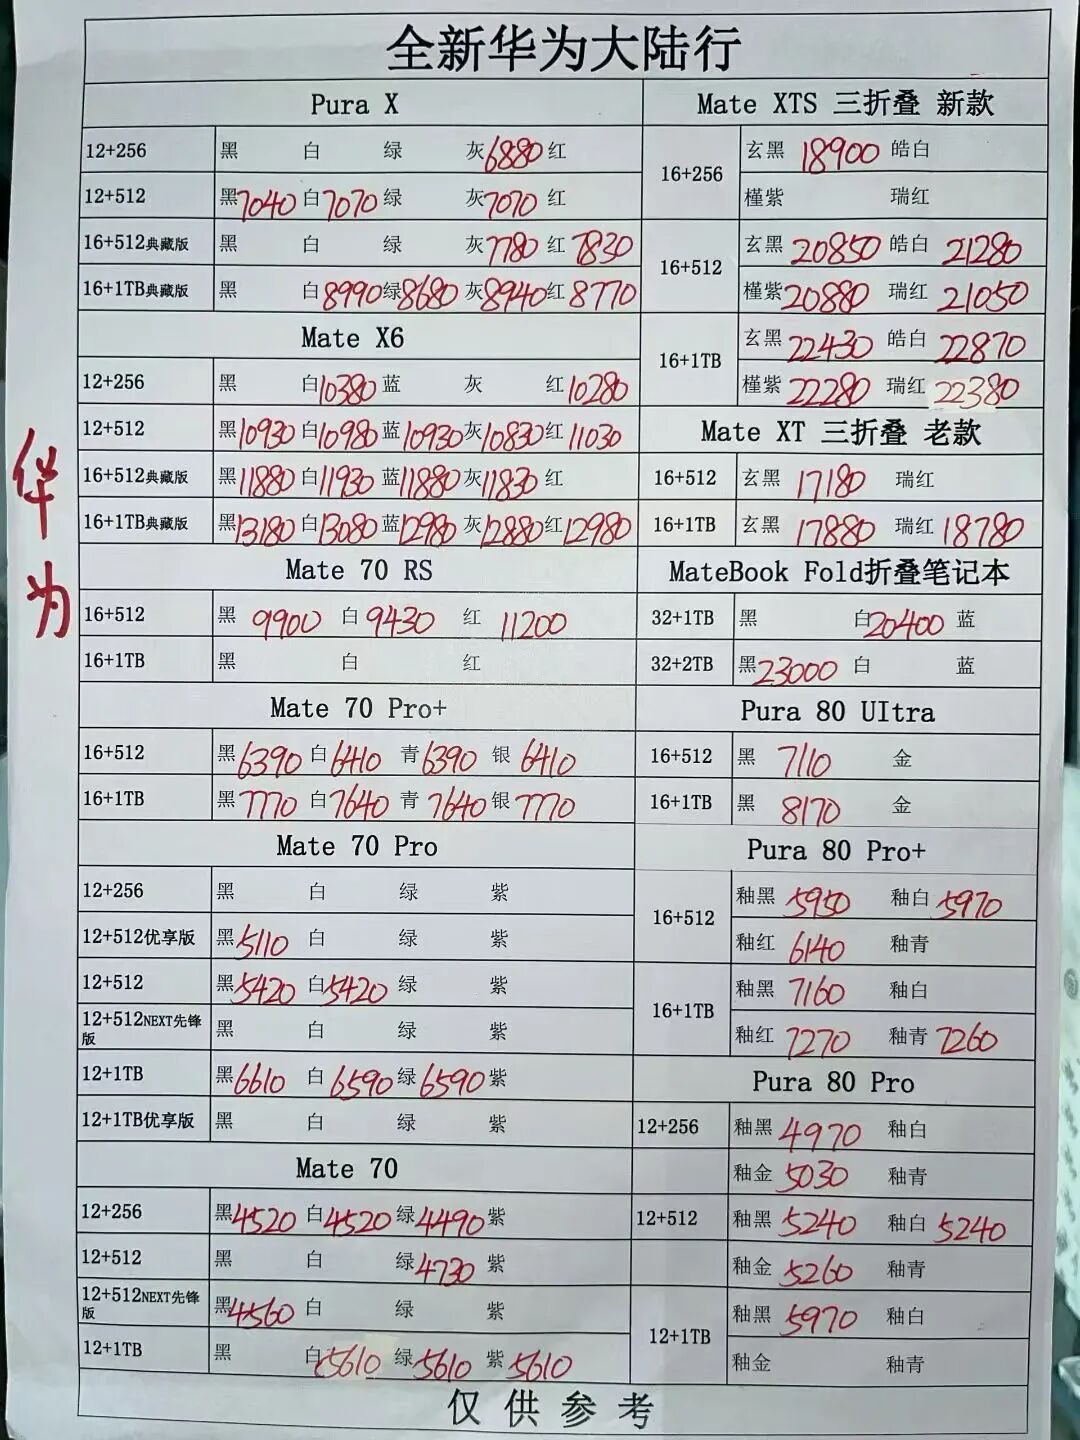 全新华为大陆行
Pura X
12+256 黑 白 绿 灰6880 红
12+512 黑7040 白7070 绿 灰7070 红
16+512典藏版 黑 白 绿 灰7780 红7830
16+1TB典藏版 黑 白8990 绿8680 灰8940 红8770
Mate X6
12+256 黑 白10380 蓝 灰 红10280
12+512 黑10930 白10980 蓝10930 灰10830 红11030
16+512典藏版 黑11880 白11930 蓝11880 灰11830 红
16+1TB典藏版 黑13180 白13080 蓝12980 灰12880 红12980
Mate 70 RS
16+512 黑 9900 白 9430 红 11200
16+1TB 黑 白 红
Mate 70 Pro+
16+512 黑6390 白6410 青6390 银 6410
16+1TB 黑7770 白7640 青 7640 银 7770
Mate 70 Pro
12+256 黑 白 绿 紫
12+512优享版 黑5110 白 绿 紫
12+512 黑5420 白5420 绿 紫
12+512NEXT先锋版 黑 白 绿 紫
12+1TB 黑6610 白6590 绿6590 紫
12+1TB优享版 黑 白 绿 紫
Mate 70
12+256 黑4520 白4520 绿4490 紫
12+512 黑 白 绿4730 紫
12+512NEXT先锋版 黑4560 白 绿 紫
12+1TB 黑 白5610 绿5610 紫5610
Mate XTS 三折叠 新款
16+256 玄黑 18900 皓白
槿紫 瑞红
16+512 玄黑 20850 皓白 21280
槿紫20880 瑞红 21050
16+1TB 玄黑 22430 皓白 22870
槿紫 22280 瑞红 22380
Mate XT 三折叠 老款
16+512 玄黑 17180 瑞红
16+1TB 玄黑 17880 瑞红 18780
MateBook Fold折叠笔记本
32+1TB 黑 白20400 蓝
32+2TB 黑23000 白 蓝
Pura 80 UItra
16+512 黑 7110 金
16+1TB 黑 8170 金
Pura 80 Pro+
16+512 釉黑 5950 釉白 5970
釉红 6140 釉青
16+1TB 釉黑 7160 釉白
釉红 7270 釉青 7260
Pura 80 Pro
12+256 釉黑 4970 釉白
釉金 5030 釉青
12+512 釉黑 5240 釉白 5240
釉金 5260 釉青
12+1TB 釉黑 5970 釉白
釉金 釉青
仅供参考
华为